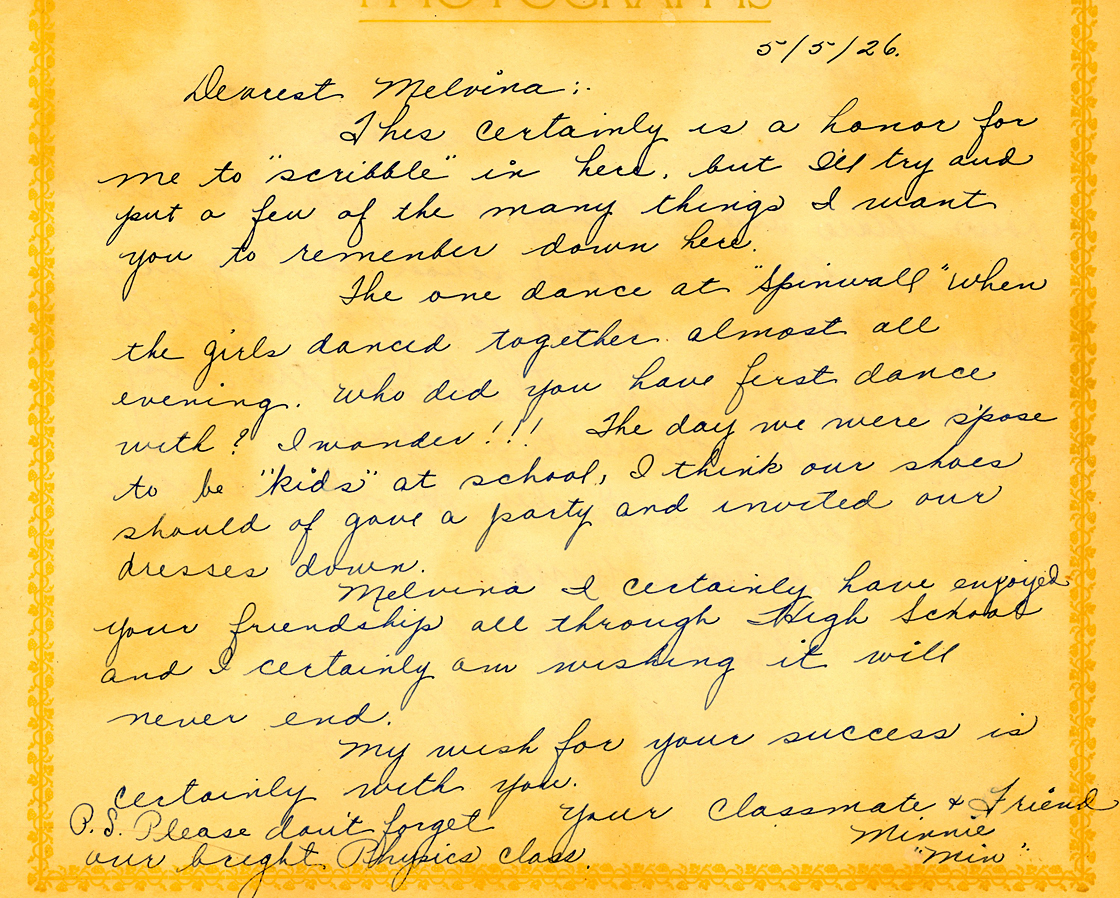 PHOTOGRAPHS
5/5/26.
Dearest Melvina:
This certainly is a honor for
me to "scribble" in here, but I'll try and
put a few of the many things I want
you to remember down here.
The one dance at "Spinwall" when
the girls danced together almost all
evening. Who did you have first dance
with? I wonder!!! The day we were s'pose
to be "kids" at school, I think our shoes
should of gave a party and invited our
dresses down.
Melvina I certainly have enjoyed
your friendship all through High School
and I certainly am wishing it will
never end.
My wish for your success is
certainly with you.
Your Classmate & Friend
Minnie
"Min"
P.S. Please don't forget
our bright Physics class.